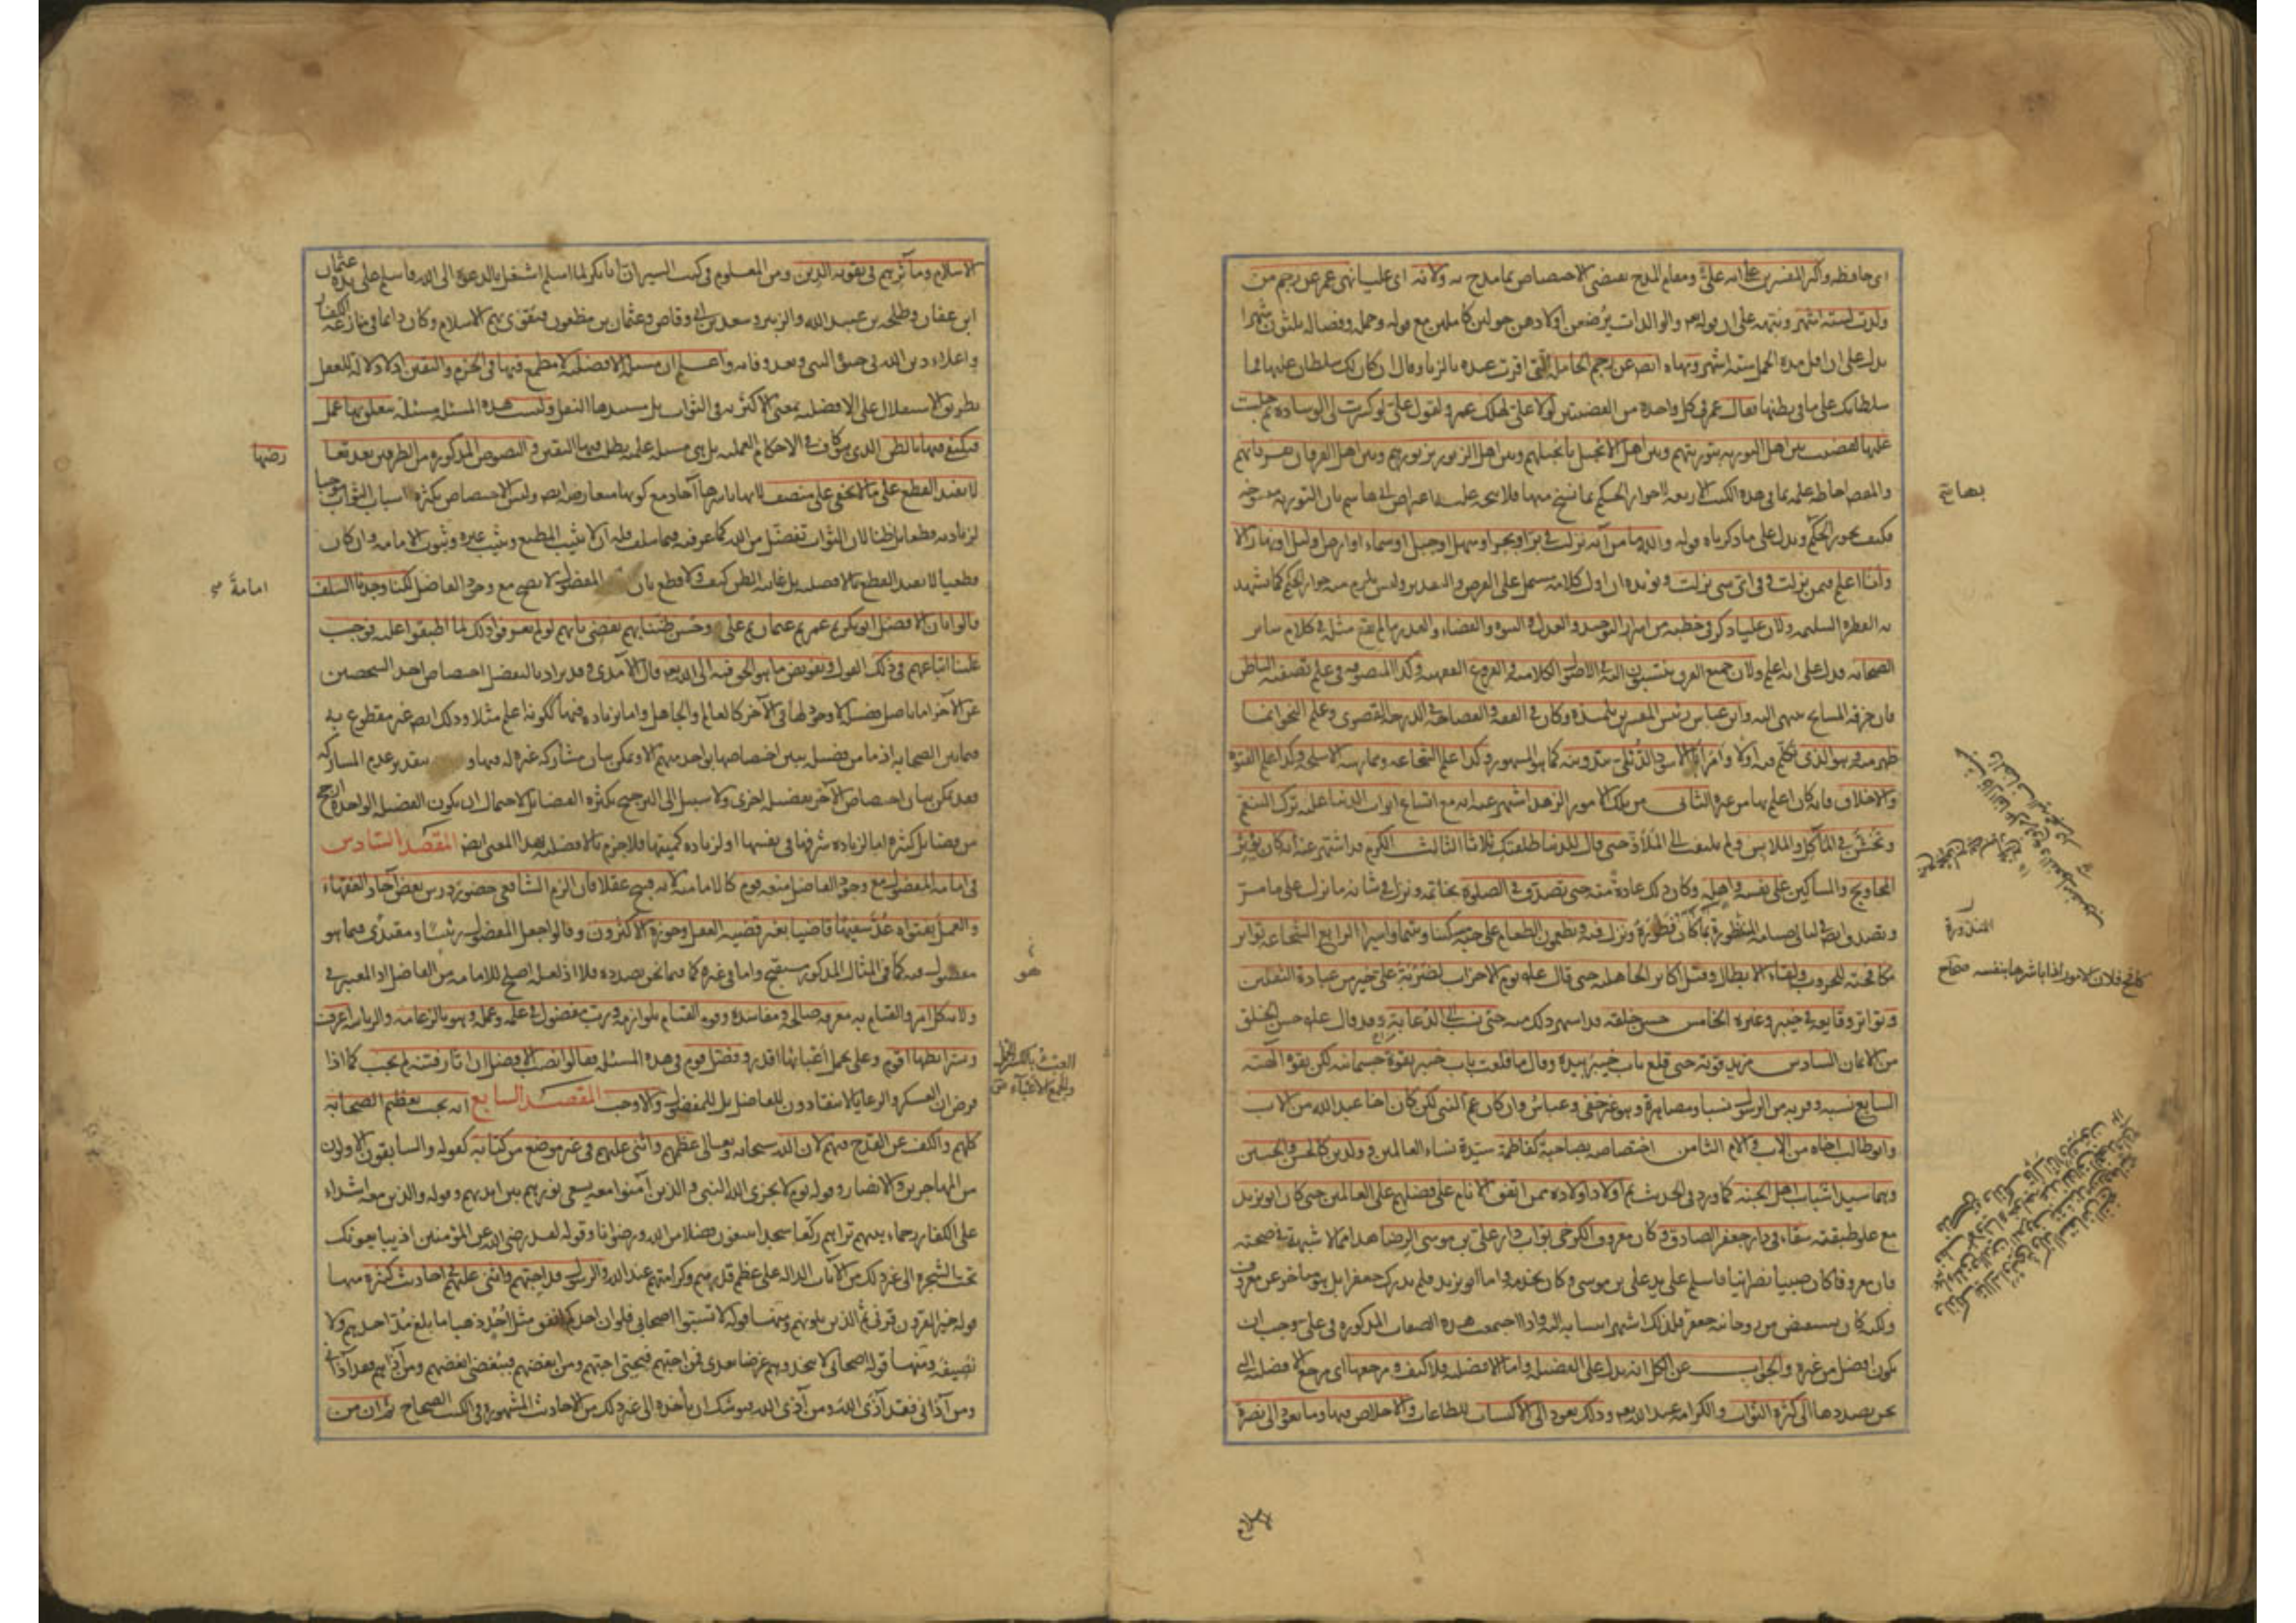 اى حافظه واكثر المفسرين على انه على ومقام المدح يقتضى الاختصاص بما مدح به ولانه اى عليا نهى عمر عن رجم من
ولدت لستة اشهر ونبهه على ان قوله تعالى والوالدات يرضعن اولادهن حولين كاملين مع قوله وحمله وفصاله ثلثون شهرا
يدل على ان اقل مدة الحمل ستة اشهر ونهاه ايضا عن رجم الحاملة التى اقرت عنده بالزنا وقال ان كان لك سلطان عليها فما
سلطانك على ما فى بطنها فقال عمر فى كل واحدة من القضيتين لولا على لهلك عمر ولقول على لو كسرت لى الوسادة ثم جلست
عليها لقضيت بين اهل التورية بتوريتهم وبين اهل الانجيل بانجيلهم وبين اهل الزبور بزبورهم وبين اهل الفرقان بفرقانهم
والمقصود احاطة علمه بما فى هذه الكتب الاربعة لا جواز الحكم بما نسخ منها فلا يتجه عليه اعتراض ابى هاشم بان التورية منسوخة
فكيف يجوز الحكم ويدل على ما ذكرناه قوله والله ما من آية نزلت فى بر او بحر او سهل او جبل او سماء او ارض او ليل او نهار الا
وانا اعلم فيمن نزلت وفى اى شىء نزلت ويؤيده ان اول كلامه يشتمل على الفرض والتقدير وليس يلزم منه جواز الحكم كما يشهد
به الفطرة السليمة ولان عليا ذكر فى خطبه من اسرار التوحيد والعدل والنبوة والقضاء والقدر ما لم يقع مثله فى كلام سائر
الصحابة فدل على انه اعلم ولان جميع الفرق ينتسبون اليه فى الاصول الكلامية والفروع الفقهية وكذا المتصوفة فى علم تصفية الباطن
فان خرقة المشايخ تنتهى اليه وابن عباس رئيس المفسرين تلميذه وكان فى الفقه والفصاحة فى الدرجة القصوى وعلم النحو انما
ظهر منه وهو الذى تكلم فيه اولا وامر ابا الاسود الدئلى بتدوينه كما هو المشهور وكذا علم الشجاعة وممارسة الاسلحة وكذا علم الفتوة
والاخلاق فانه كان اعلم بها من غيره الثانى من تلك الامور الزهد اشتهر عنه انه مع اتساع ابواب الدنيا عليه ترك التنعم
وتخشن فى المآكل والملابس ولم يلتفت الى الملاذ حتى قال للدنيا طلقتك ثلاثا الثالث الكرم قد اشتهر عنه انه كان يؤثر
المحاويج والمساكين على نفسه واهله وكان ذلك عادة منه حتى تصدق فى الصلوة بخاتمه ونزل فى شانه ما نزل على ما مر
وتصدق ايضا فى ليالى صيامه المنذورة بما كان فطوره ونزل فيه ويطعمون الطعام على حبه مسكينا ويتيما واسيرا الرابع الشجاعة تواتر
مكافحته للحروب ولقاء الابطال وقتل اكابر الجاهلية حتى قال عليه يوم الاحزاب لضربة على خير من عبادة الثقلين
وتواتر وقايعه فى خيبر وغيره الخامس حسن خلقه قد اشتهر ذلك منه حتى نسب الى الدعابة وقد قال عليه حسن الخلق
من الايمان السادس مزيد قوته حتى قلع باب خيبر بيده وقال ما قلعت باب خيبر بقوة جسمانية لكن بقوة آلهية
السابع نسبه وقربه من الرسول نسبا ومصاهرة وهو غير خفى وعباس وان كان عم النبى لكن كان اخا عبد الله من الاب
وابو طالب اخاه من الاب والام الثامن اختصاصه بصاحبة كفاطمة سيدة نساء العالمين وولدين كالحسن والحسين
وهما سيدا شباب اهل الجنة كما ورد فى الحديث ثم اولاد اولاده ممن اتفق الانام على فضلهم على العالمين حتى كان ابو يزيد
مع علو طبقته سقاء فى دار جعفر الصادق وكان معروف الكرخى بواب دار على بن موسى الرضا هذا مما لا شبهة فى صحته
فان معروفا كان صبيا نصرانيا فاسلم على يد على بن موسى وكان يخدمه واما ابو يزيد فلم يدرك جعفرا بل هو متأخر عن معروف
ولكنه كان يستفيض من روحانية جعفر فلذلك اشتهر انتسابه اليه واذا اجتمعت هذه الصفات المذكورة فى على وجب ان
يكون افضل من غيره والجواب عن الكل انه يدل على الفضيلة واما الافضلية فلا كيف ومرجعها اى مرجع الافضلية التى
نحن بصددها الى كثرة الثواب والكرامة عند الله تعالى وذلك يعود الى الاكتساب للطاعات والاخلاص فيها وما يعود الى نصرة
المنذورة
كافح فلان الامور اذا باشرها بنفسه صحاح
الاسلام
الاسلام ومآثرهم فى تقوية الدين ومن المعلوم فى كتب السير ان ابا بكر لما اسلم اشتغل بالدعوة الى الله فاسلم على يده عثمان
ابن عفان وطلحة بن عبيد الله والزبير وسعد بن ابى وقاص وعثمان بن مظعون فتقوى بهم الاسلام وكان دائما فى منازعة الكفار
واعلاء دين الله فى حيوة النبى وبعد وفاته واعلم ان مسئلة الافضلية لا مطمع فيها فى الجزم واليقين اذ لا دلالة للعقل
بطريق الاستقلال على الافضلية بمعنى الاكثرية فى الثواب بل مستندها النقل وليست هذه المسئلة مسئلة يتعلق بها عمل
فيكتفى فيها بالظن الذى هو كاف فى الاحكام العملية بل هى مسئلة علمية يطلب فيها اليقين والنصوص المذكورة من الطرفين بعد تعا
رضها
لا يفيد القطع على ما لا يخفى على منصف لانها باسرها آحاد مع كونها متعارضة ايضا وليس الاختصاص بكثرة اسباب الثواب موجبا
لزيادته قطعا بل ظنا لان الثواب تفضل من الله كما عرفته فيما سلف فله ان لا يثيب المطيع ويثيب غيره وثبوت الامامة وان كان
قطعيا لا يفيد القطع بالافضلية بل غايته الظن كيف ولا قطع بان امامة المفضول لا يصح مع وجود الفاضل لكنا وجدنا السلف
قالوا بان الافضل ابو بكر ثم عمر ثم عثمان ثم على وحسن ظننا بهم يقضى بانهم لو لم يعرفوا ذلك لما اطبقوا عليه فوجب
علينا اتباعهم فى ذلك القول وتفويض ما هو الحق فيه الى الله تعالى قال الآمدى وقد يراد بالتفضيل اختصاص احد الشخصين
عن الآخر اما باصل فضيلة لا وجود لها فى الآخر كالعالم والجاهل واما بزيادة فيها ككونه اعلم مثلا وذلك ايضا غير مقطوع به
فيما بين الصحابة اذ ما من فضيلة يبين اختصاصها بواحد منهم الا ويمكن بيان مشاركة غيره له فيها و بتقدير عدم المشاركة
فقد يمكن بيان اختصاص الآخر بفضيلة اخرى ولا سبيل الى الترجيح بكثرة الفضائل لاحتمال ان يكون الفضيلة الواحدة ارجح
من فضائل كثيرة اما لزيادة شرفها فى نفسها او لزيادة كميتها فلا جزم بالافضلية بهذا المعنى ايضا المقصد السادس
فى امامة المفضول مع وجود الفاضل منعه قوم كالامامية لانه قبيح عقلا فان الزم الشافعى حضور درس بعض آحاد الفقهاء
والعمل بفتواه عد سفيها قاضيا بغير قضية العقل وجوزه الاكثرون وقالوا جعل المفضول رئيسا ومقتدى فيما هو
هو
مفضول فيه كما فى المثال المذكور مستقبح واما فى غيره كما فيما نحن بصدده فلا اذ لعله اصلح للامامة من الفاضل اذ المعتبر فى
ولاية كل امر والقيام به معرفة مصالحه ومفاسده وقوة القيام بلوازمه ورب مفضول فى علمه وعمله وهو بالزعامة والرياسة اعرف
وبشرائطها اقوم وعلى تحمل اعبائها اقدر وفصل قوم فى هذه المسئلة فقالوا نصب الافضل ان اثار فتنة لم يجب كما اذا
العبء بالكسر الحمل
والجمع الاعباء ص
فرض ان العسكر والرعايا لا ينقادون للفاضل بل للمفضول والا وجب المقصد السابع انه يجب تعظيم الصحابة
كلهم والكف عن القدح فيهم لان الله سبحانه وتعالى عظمهم واثنى عليهم فى غير موضع من كتابه كقوله والسابقون الاولون
من المهاجرين والانصار وقوله يوم لا يخزى الله النبى والذين آمنوا معه يسعى نورهم بين ايديهم وقوله والذين معه اشداء
على الكفار رحماء بينهم تراهم ركعا سجدا يبتغون فضلا من الله ورضوانا وقوله لقد رضى الله عن المؤمنين اذ يبايعونك
تحت الشجرة الى غير ذلك من الآيات الدالة على عظم قدرهم وكرامتهم عند الله والرسول قد احبهم واثنى عليهم فى احاديث كثيرة منها
قوله خير القرون قرنى ثم الذين يلونهم ومنها قوله لا تسبوا اصحابى فلو ان احدكم انفق مثل احد ذهبا ما بلغ مد احدهم ولا
نصيفه ومنها قوله الله الله فى اصحابى لا تتخذوهم غرضا بعدى فمن احبهم فبحبى احبهم ومن ابغضهم فببغضى ابغضهم ومن آذاهم فقد آذانى
ومن آذانى فقد آذى الله ومن آذى الله فيوشك ان يأخذه الى غير ذلك من الاحاديث المشهورة فى الكتب الصحاح ثم ان من